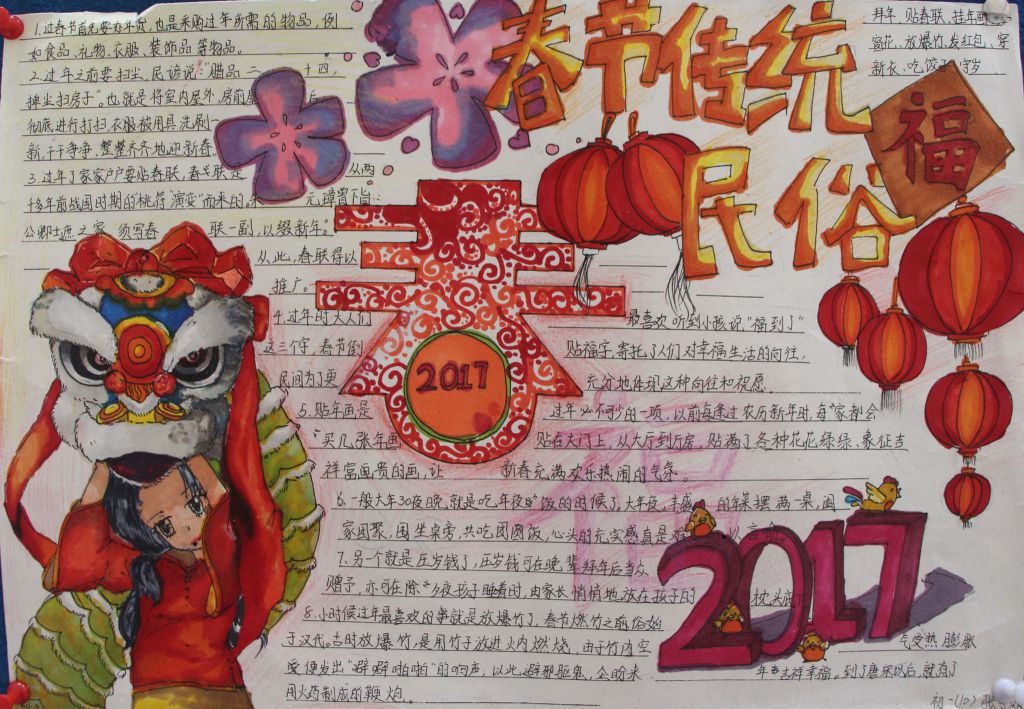 春节传统
民俗
福
春
2017
2017
1.过春节首先要办年货,也是采购过年所需的物品,例
如食品、礼物、衣服、装饰品等物品。
2.过年之前要扫尘,民谚说:腊品二 十四,
掸尘扫房子"。也就是将室内屋外,房前屋 后
彻底进行打扫,衣服被用具洗刷一
新,干干争争,整整齐齐地迎新春。
3.过年了家家户户要贴春联,春联是 从两
千多年前战国时期的桃符演变而来的, 元璋曾下旨:
公卿士庶之家 须写春 联一副,以缀新年。"
从此,春联得以
推广。
4.过年时大人们 最喜欢听到小孩说"福到了"
这三个字,春节倒 贴福字,寄托了人们对幸福生活的向往,
民间为了更 充分地体现这种向往和祝愿
5.贴年画是 过年必不可少的一项,以前每逢过农历新年时,每家都会
买几张年画 贴在大门上,从大厅到厅房,贴满了各种花花绿绿、象征吉
祥富贵的画,让 新春充满欢乐热闹的气氛。
6.一般大年30夜晚,就是吃年夜饭的时候了,大年夜,丰盛 的年菜摆满一桌,阖
家团聚,围坐桌旁,共吃团圆饭,心头的充实感真是难 以
7.另一个就是压岁钱了,压岁钱可在晚辈拜年后当众
赠予,亦可在除夕夜孩子睡着时,由家长悄悄地放在孩子的 枕头底
8.小时候过年最喜欢的事就是放爆竹了,春节燃竹之前俗始
于汉代。古时放爆竹,是用竹子放进火内燃烧,由于竹内空 气受热膨胀
受便发出"噼噼啪啪"的响声,以此避邪驱鬼,企盼来 年吉祥幸福。到了唐宋以后,就有了
用火药制成的鞭炮。
拜年、贴春联、挂年画
窗花、放爆竹、发红包、穿
新衣、吃饺子、守岁
初一(10) 张